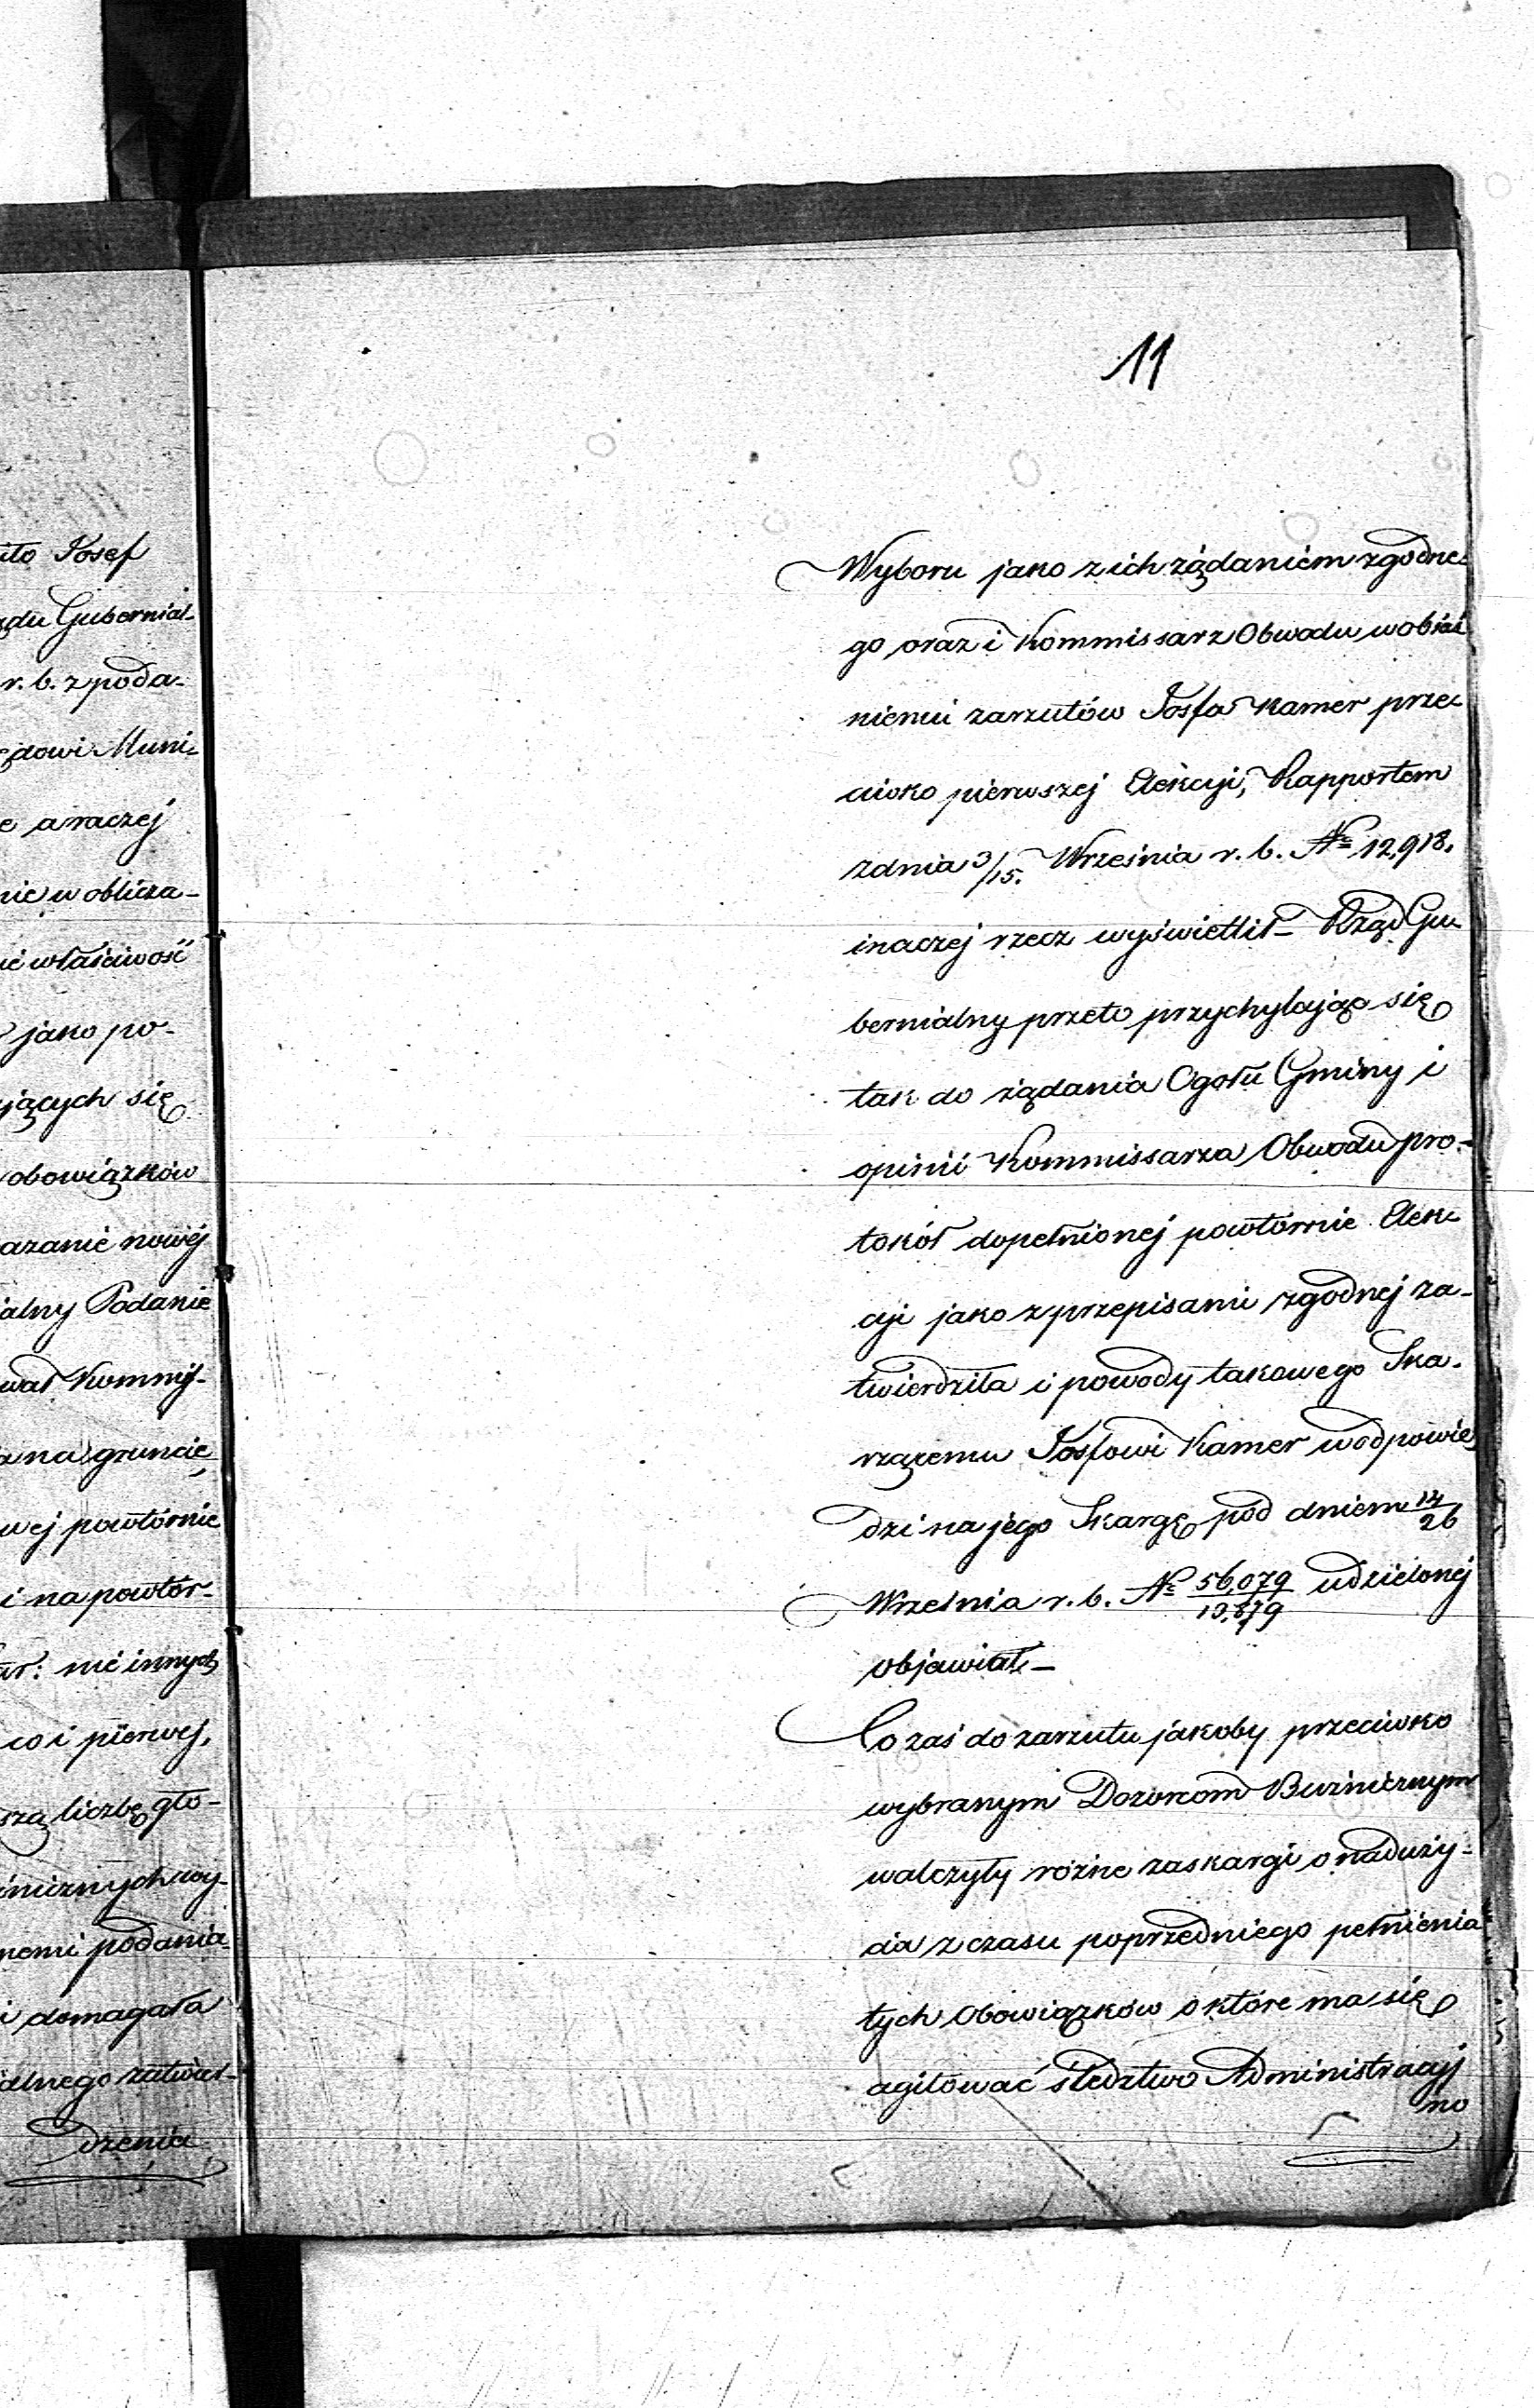 ito Josef
ądu Gubernial-
r. b. z poda-
ędowi Muni-
e a raczej
nie w obliża-
ić właściwość
jako po-
jących się
obowiązków
azanie nowéj
ialny Podanie
wał Kommis-
a na gruncie
wej powtórnie
i na powtór-
ar: nié innych
co i pierwej,
szą liczbę gło-
źnicznych wy-
nemi podania-
i domagała
ialnego zatwier-
dzenia
11
Wyboru jako z ich żądaniem zgodne-
go oraz i Kommissarz Obwodu w obiaś
nieniu zarzutów Josfa Kamer prze-
ciwko pierwszej Elekcyi, Rapportem
z dnia 3/15. Września r. b. № 12,918.
inaczej rzecz wyświetlił – Rząd Gu-
bernialny przeto przychylając się
tak do żądania Ogołu Gminy i
opinii Kommissarza Obwodu pro-
tokół dopełnionej powtórnie Elek-
cyi jako z przepisami zgodnej za-
twierdziła i powody takowego Ska-
rzącemu Josfowi Kamer w odpowie
dzi na jego Skargę pod dniem 14/26
Września r. b. № 56,079/13,679 udzielonej
objawiał. –
Co zaś do zarzutu jakoby przeciwko
wybranym Dozorcom Bużnicznym
walczyły różne zaskargi o naduży-
cia z czasu poprzedniego pełnienia
tych Obowiązków o które ma się
agitować śledztwo Administracyj
no